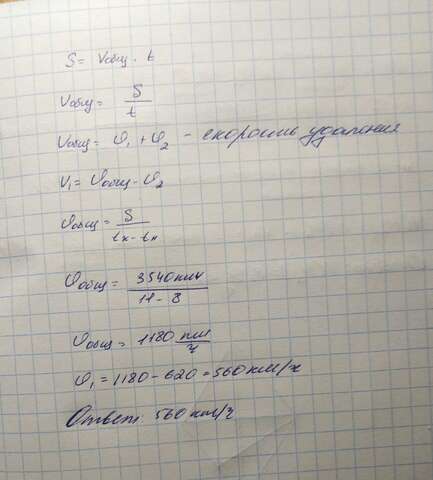 S = Vобщ · t
Vобщ = S/t
Vобщ = V₁ + V₂ - скорость удаления
V₁ = Vобщ - V₂
Vобщ = S/(tк - tн)
Vобщ = 3540 км/(11 - 8)
Vобщ = 1180 км/ч
V₁ = 1180 - 620 = 560 км/ч
Ответ: 560 км/ч